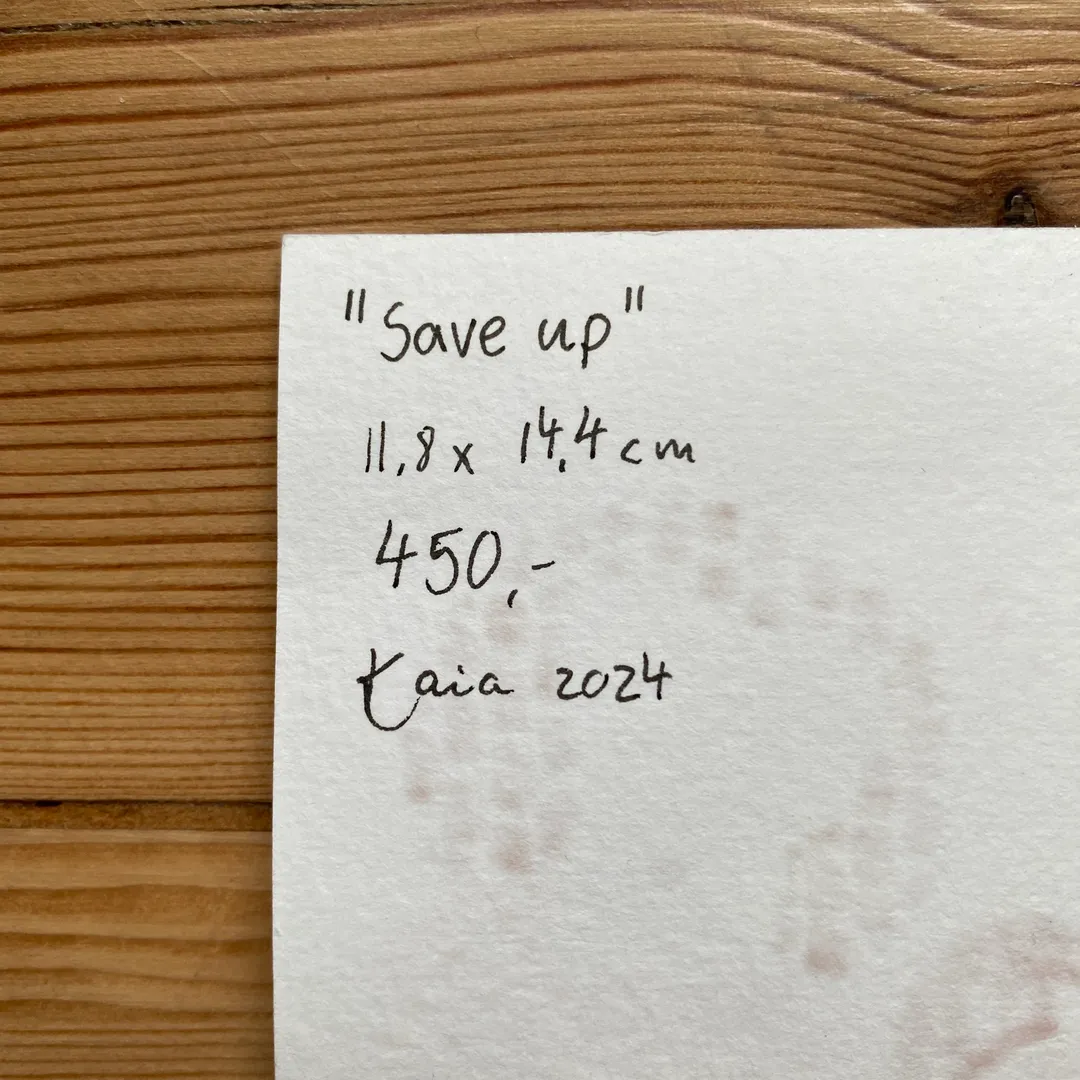 "Save up"
11,8 x 14,4 cm
450,-
Kaia 2024